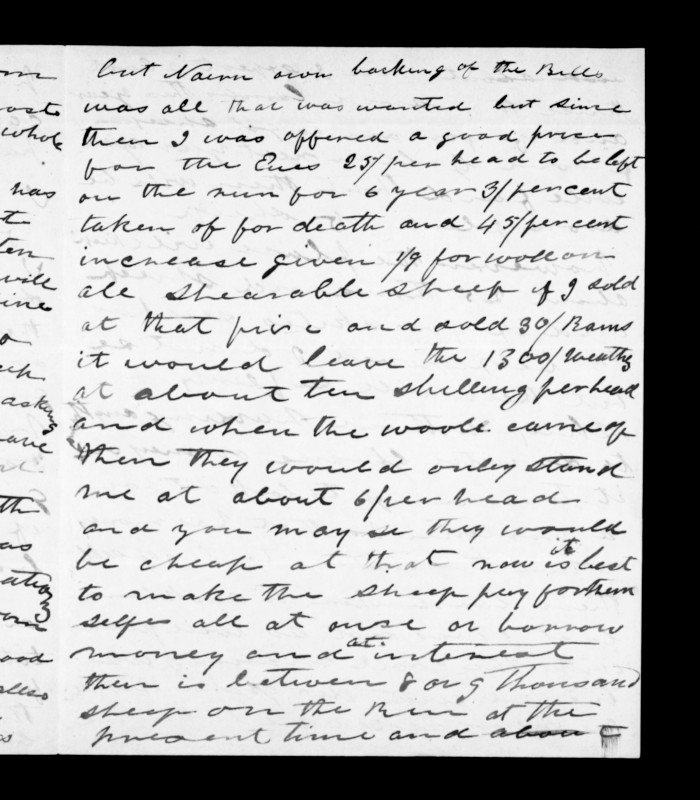 but Nairn own backing of the Bills
was all that was wanted but since
then I was offered a good price
for the Ewes 25/ per head to be left
on the run for 6 year 3/ percent
taken of for death and 45/ percent
increase given 1/9 for wool on
all shearable sheep if I sold
at that price and sold 30/ Rams
it would leave the 1300/ Weathers
at about ten shelling per head
and when the woole came of
then they would onley stand
me at about 6/ per head
and you may se they would
be cheap at that now is it best
to make the sheep pay for them
selfes all at onse or borrow
money and at interest
their is between 8 or 9 Thousand
sheep on the Run at the
present time and about
has
will
asking
good